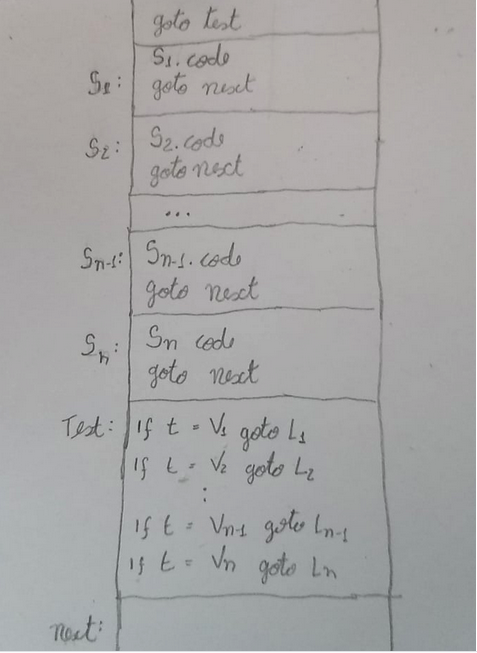 goto test
S1. code
S1: goto next
S2: S2. code
goto next
...
Sn-1: Sn-1. code
goto next
Sn: Sn code
goto next
Test: if t = V1 goto L1
if t = V2 goto L2
:
if t = Vn-1 goto Ln-1
if t = Vn goto Ln
next: